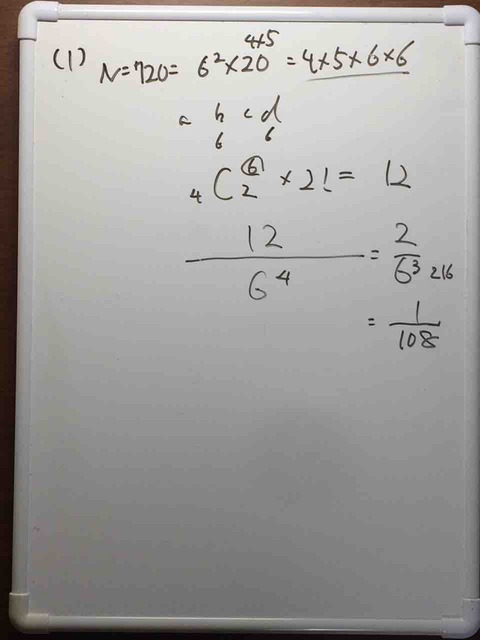 4×5
(1) N=720= 6²×20 = 4×5×6×6
a b c d
6 6
₄C₂ ⑥ ×2! = 12
12/6⁴ = 2/6³ 216
= 1/108